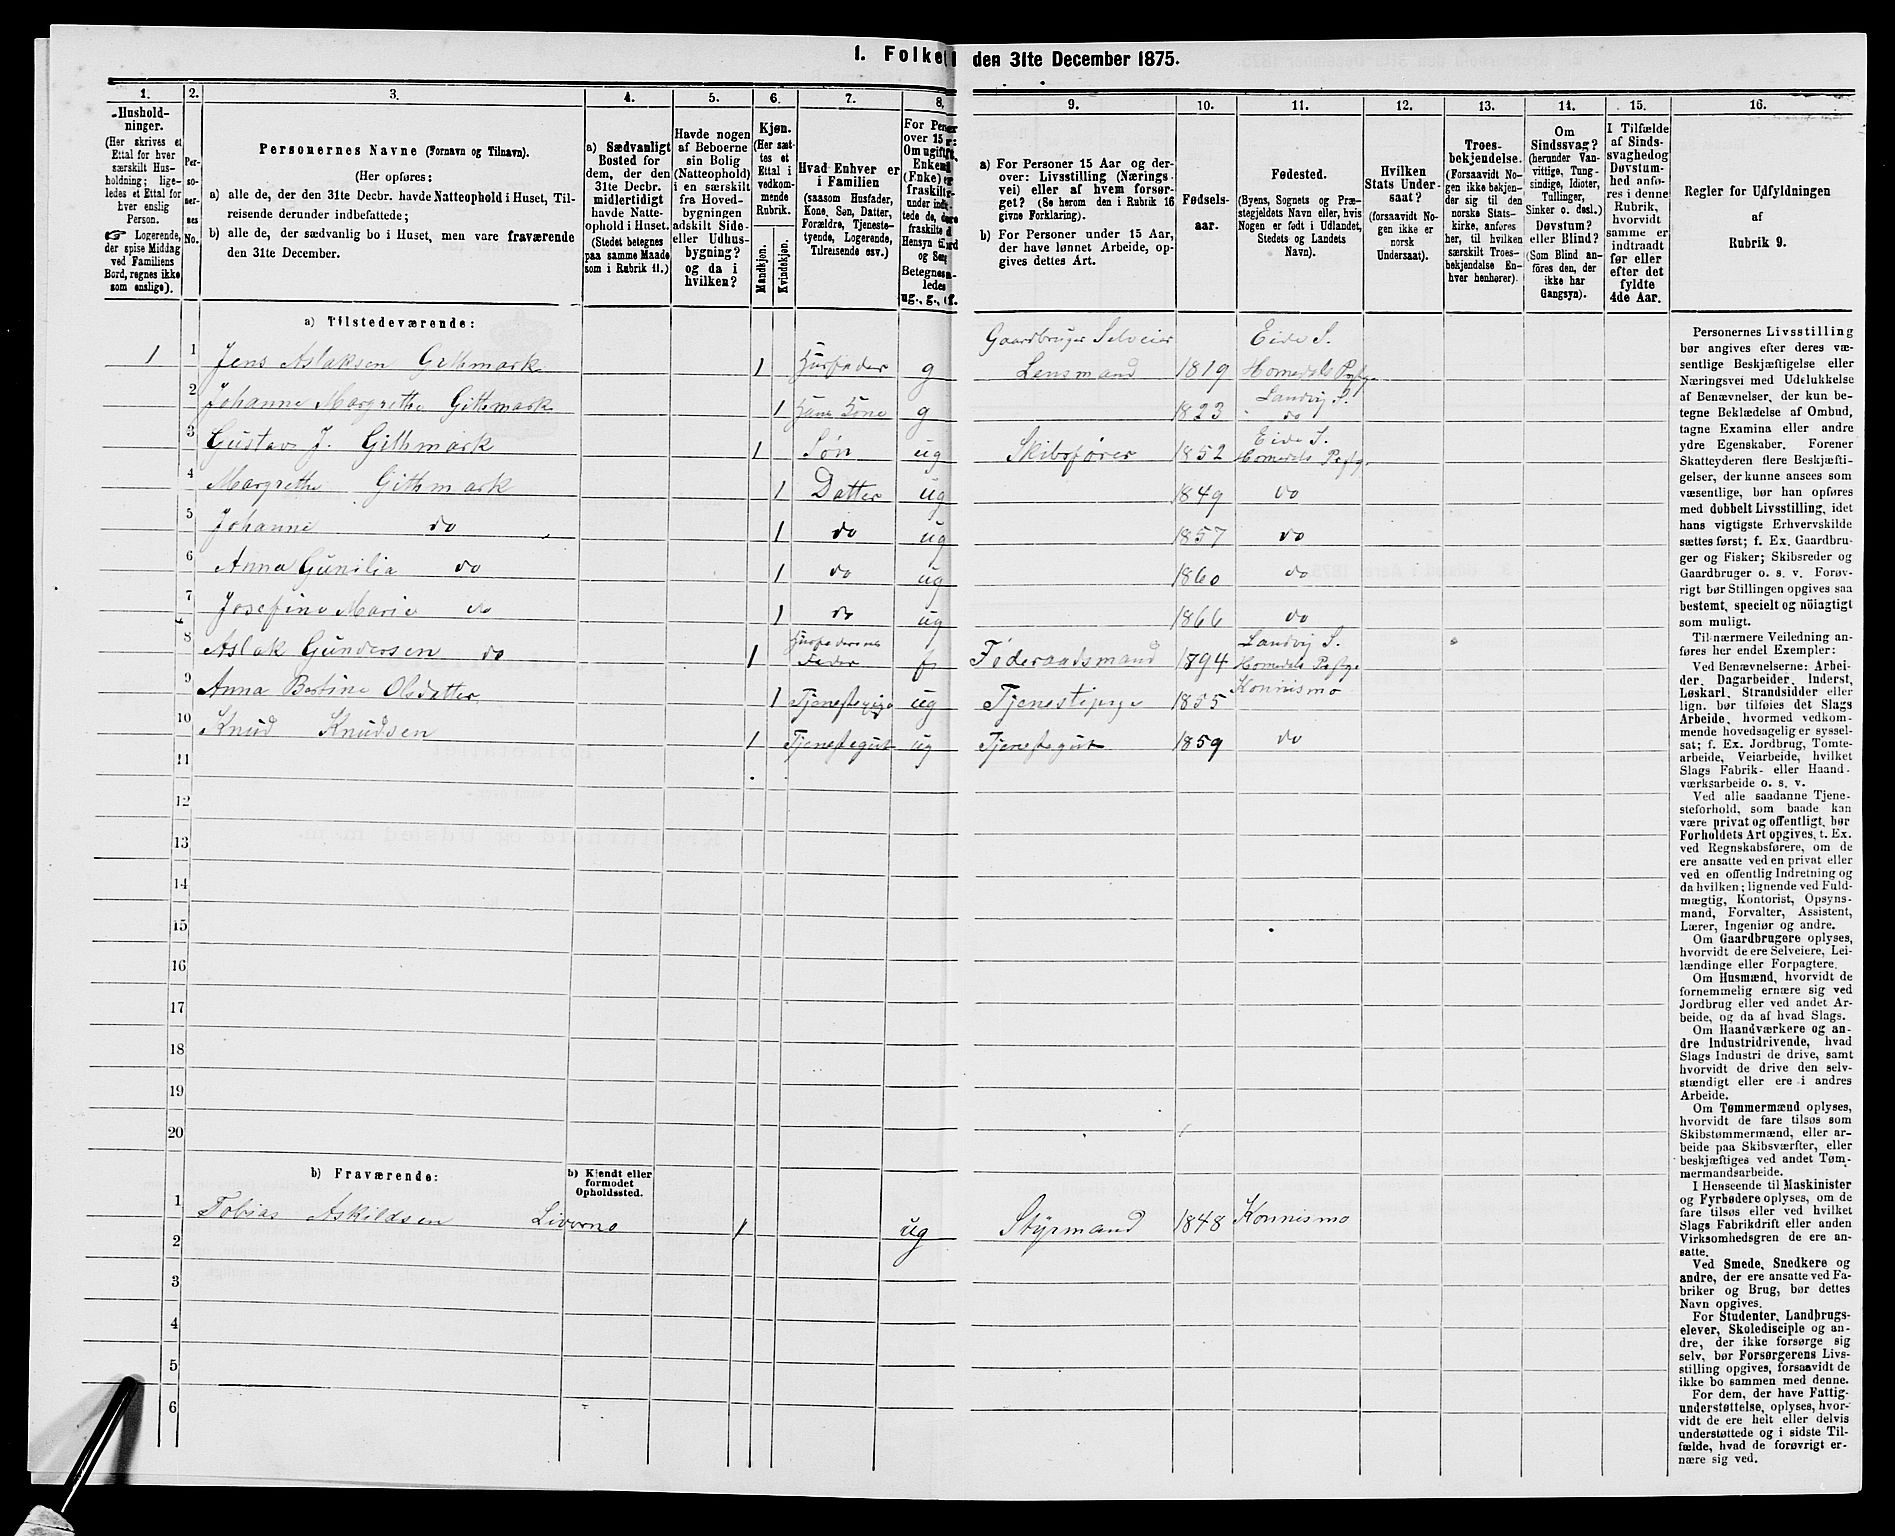 1. Folke
den 31te December 1875.
1.
2.
3.
4.
5.
6.
7.
8.
9.
10.
11.
12.
13.
14.
15.
16.
Hushold-
ninger.
(Her skrives et
Ettal for hver
særskilt Hus-
holdning; lige-
ledes et Ettal for
hver enslig
Person.
☞ Logerende,
der spise Middag
ved Familiens
Bord, regnes ikke
som enslige).
Per-
so-
ner-
nes
No.
Personernes Navne (Fornavn og Tilnavn).
(Her opføres:
a) alle de, der den 31te Decbr. havde Natteophold i Huset, Til-
reisende derunder indbefattede;
b) alle de, der sædvanlig bo i Huset, men vare fraværende
den 31te December.
a) Sædvanligt
Bosted for
dem, der den
31te Decbr.
midlertidigt
havde Natte-
ophold i Huset.
(Stedet betegnes
paa samme Maade
som i Rubrik 11.)
Havde nogen
af Beboerne
sin Bolig
(Natteophold)
i en særskilt
fra Hoved-
bygningen
adskilt Side-
eller Udhus-
bygning?
og da i
hvilken?
Kjøn.
(Her sæt-
tes et
Ettal i
vedkom-
mende
Rubrik.
Mandkjøn.
Kvindekjøn.
Hvad Enhver er
i Familien
(saasom Husfader,
Kone, Søn, Datter,
Forældre, Tjeneste-
tyende, Logerende,
Tilreisende osv.)
For Perso
over 15
Om ugift
Enkem
(Enke)
fraskilt
under indb
tede de,
fraskilte
Hensyn til
og Seng
Betegnes
ledes
ug., g.,
a) For Personer 15 Aar og der-
over: Livsstilling (Nærings-
vei) eller af hvem forsør-
get? (Se herom den i Rubrik 16
givne Forklaring).
b) For Personer under 15 Aar,
der have lønnet Arbeide, op-
gives dettes Art.
Fødsels-
aar.
Fødested.
(Byens, Sognets og Præ-
stegjeldets Navn eller, hvis
Nogen er født i Udlandet,
Stedets og Landets
Navn).
Hvilken
Stats Under-
saat?
(forsaavidt No-
gen ikke er
norsk
Undersaat).
Troes-
bekjendelse.
(Forsaavidt No-
gen ikke bekjen-
der sig til den
norske Stats-
kirke, anføres
her, til hvilken
særskilt Troes-
bekjendelse En-
hver henhører).
Om
Sindssvag?
(herunder Van-
vittige, Tung-
sindige, Idioter,
Tullinger,
Sinker o. desl.)
Døvstum?
eller Blind?
(Som Blind an-
føres den, der
ikke har
Gangsyn).
I Tilfælde
af Sinds-
svaghed og
Døvstum-
hed anfø-
res i denne
Rubrik,
hvorvidt
samme er
indtraadt
før eller
efter det
fyldte
4de Aar.
Regler for Udfyldningen
af
Rubrik 9.
a) Tilstedeværende:
1 1 Jens Aslaksen Githmark 1 Husfader g Gaardbruger Selveier Lensmand 1819 Eide S. Homedals Præstg.
2 Johanne Margrethe Githmark 1 Hans Kone g 1823 Landvig S. do
3 Gustav J. Githmark 1 Søn ug Skibsfører 1852 Eide S. Homedals Præstg.
4 Margrethe Githmark 1 Datter ug 1849 do
5 Johanne do 1 do ug 1857 do
6 Anna Gunilia do 1 do ug 1860 do
7 Josefine Marie do 1 do ug 1866 do
8 Aslak Gundersen do 1 Husfaderens Fader Føderaadsmand 1894 Landvig S. Homedals Præstg.
9 Anna Bertine Olsdatter 1 Tjenestepige ug Tjenestepige 1855 Konnismo
10 Knud Knudsen 1 Tjenestegut ug Tjenestegut 1859 do
11
12
13
14
15
16
17
18
19
20
b) Fraværende:
b) Kjendt eller
formodet
Opholdssted.
1 Tobias Askildsen Livorno 1 ug Styrmand 1848 Konnismo
2
3
4
5
6
Personernes Livsstilling
bør angives efter deres væ-
sentlige Beskjæftigelse eller
Næringsvei med Udelukkelse
af Benævnelser, der kun be-
tegne Beklædelse af Ombud,
tagne Examina eller andre
ydre Egenskaber. Forener
Skatteyderen flere Beskjæfti-
gelser, der kunne ansees som
væsentlige, bør han opføres
med dobbelt Livsstilling, idet
hans vigtigste Erhvervskilde
sættes først; f. Ex. Gaardbru-
ger og Fisker; Skibsreder og
Gaardbruger o. s. v. Forøv-
rigt bør Stillingen opgives saa
bestemt, specielt og nøiagtigt
som muligt.
Til nærmere Veiledning an-
føres her endel Exempler:
Ved Benævnelserne: Arbei-
der, Dagarbeider, Inderst,
Løskarl, Strandsidder eller
lign. bør tilføies det Slags
Arbeide, hvormed vedkom-
mende hovedsagelig er syssel-
sat; f. Ex. Jordbrug, Tomte-
arbeide, Veiarbeide, hvilket
Slags Fabrik- eller Haand-
værksarbeide o. s. v.
Ved alle saadanne Tjene-
steforhold, som baade kan
være privat og offentligt, bør
Forholdets Art opgives, t. Ex.
ved Regnskabsførere, om de
ere ansatte ved en privat eller
ved en offentlig Indretning og
da hvilken; lignende ved Fuld-
mægtig, Kontorist, Opsyns-
mand, Forvalter, Assistent,
Lærer, Ingeniør og andre.
Om Gaardbrugere oplyses,
hvorvidt de ere Selveiere, Lei-
lændinge eller Forpagtere.
Om Husmænd, hvorvidt de
fornemmelig ernære sig ved
Jordbrug eller ved andet Ar-
beide, og da af hvad Slags.
Om Haandværkere og an-
dre Industridrivende, hvad
Slags Industri de drive, samt
hvorvidt de drive den selv-
stændigt eller ere i andres
Arbeide.
Om Tømmermænd oplyses,
hvorvidt de fare tilsøs som
Skibstømmermænd, eller ar-
beide paa Skibsværfter, eller
beskjæftiges ved andet Tøm-
mermandsarbeide.
I Henseende til Maskinister
og Fyrbødere oplyses, om de
fare tilsøs eller ved hvilket
Slags Fabrikdrift eller anden
Virksomhedsgren de ere an-
satte.
Ved Smede, Snedkere og
andre, der ere ansatte ved Fa-
briker og Brug, bør dettes
Navn opgives.
For Studenter, Landbrugs-
elever, Skoledisciple og an-
dre, der ikke forsørge sig
selv, bør Forsørgerens Livs-
stilling opgives, forsaavidt de
ikke bo sammen med denne.
For dem, der have Fattig-
understøttelse, oplyses, hvor-
vidt de ere helt eller delvis
understøttede og i sidste Til-
fælde, hvad de forøvrigt er-
nære sig ved.